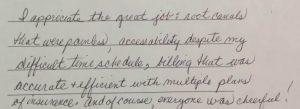 I appreciate the great job: root canals
that were painless, accessability despite my
difficult time schedule, billing that was
accurate + efficient with multiple plans
of insurance, and of course, everyone was cheerful!